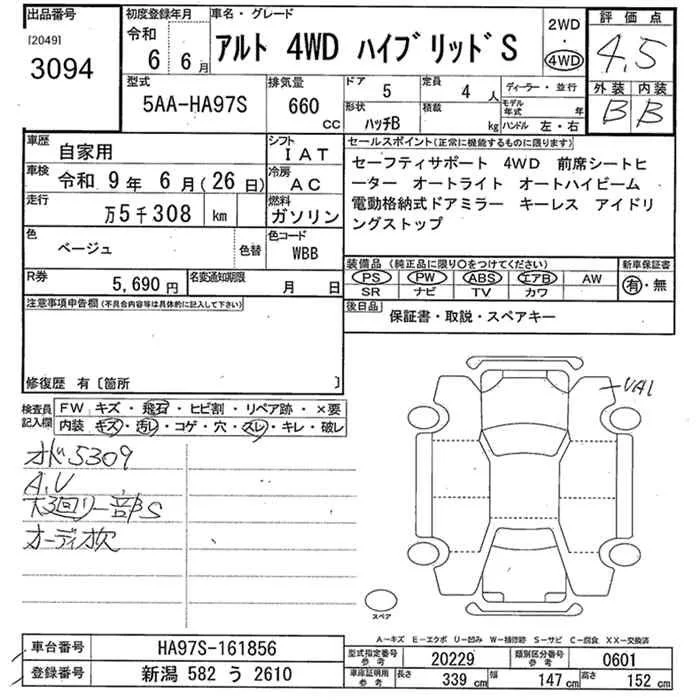 出品番号 初度登録年月 車名・グレード 2WD ・ 4WD 評価点
[2049] 3094 令和 6 6月 アルト 4WD ハイブリッドS 4.5
型式 排気量 ドア 5 定員 4人 ディーラー・並行 外装 内装
5AA-HA97S 660 CC 形状 ハッチB 積載 kg モデル年式 年 ハンドル 左・右 B B
車歴 自家用 シフト IAT セールスポイント(正常に機能するものに限ります)
車検 令和 9年 6月(26日) 冷房 AC セーフティサポート 4WD 前席シートヒ
ーター オートライト オートハイビーム
走行 万5千308 km 燃料 ガソリン 電動格納式ドアミラー キーレス アイドリ
ングストップ
色 ベージュ 色替 色コード WBB
装備品 (純正品に限り○をつけてください) 新車保証書
R券 5,690円 名変通知期限 月 日 PS PW ABS エアB AW 有・無
SR ナビ TV カワ
注意事項申告欄(不具合内容等は具体的に記入して下さい) 後日品 保証書・取説・スペアキー
修復歴 有〔箇所 〕
検査員記入欄 FW キズ・飛石・ヒビ割・リペア跡・×要
内装 キズ・汚レ・コゲ・穴・スレ・キレ・破レ
-UA1
オド5309
A.U
回り一部S
オーディオ欠
スペア
A―キズ E―エクボ U―凹み W―補修跡 S―サビ C―腐食 XX―交換済
車台番号 HA97S-161856 型式指定番号 参考 20229 類別区分番号 参考 0601
登録番号 新潟 582 う 2610 車庫証明用 参考 長さ 339cm 幅 147cm 高さ 152cm